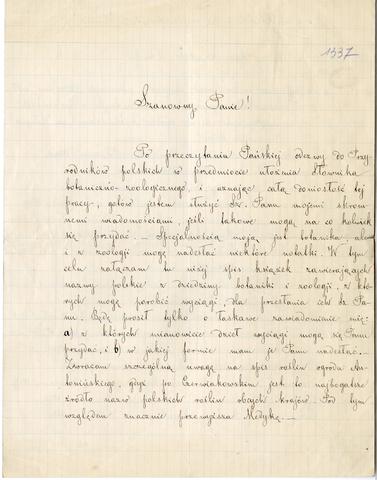 1337
Szanowny Panie!
Po przeczytaniu Pańskiej odezwy do Przy-
rodników polskich w przedmiocie ułożenia słownika
botaniczno-zoologicznego, i uznając całą doniosłość tej
pracy, gotów jestem służyć Sz. Panu mojemi skrom-
nemi wiadomościami, jeśli takowe mogą na co kolwiek
się przydać. — Specjalnością moją jest botanika, ale
i z zoologii mogę nadesłać niektóre notatki. W tym
celu załączam tu niżej spis książek zawierających
nazwy polskie z dziedziny botaniki i zoologii, z któ-
rych mogę porobić wyciągi, dla przesłania ich Sz. Pa-
nu. Będę prosił tylko o łaskawe zawiadomienie mię:
a) z których mianowicie dzieł wyciągi mogą się Panu
przydać, i b) w jakiej formie mam je Panu nadesłać. —
Zwracam szczególną uwagę na spis roślin ogrodu An-
tonińskiego, gdyż po Czerwiakowskim jest to najbogatsze
źródło nazw polskich roślin obcych krajów. Pod tym
względem znacznie przewyższa Medykę. —